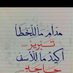 مدام ما للخطأ
تبرير
أكيد ما للأسف
حاجه